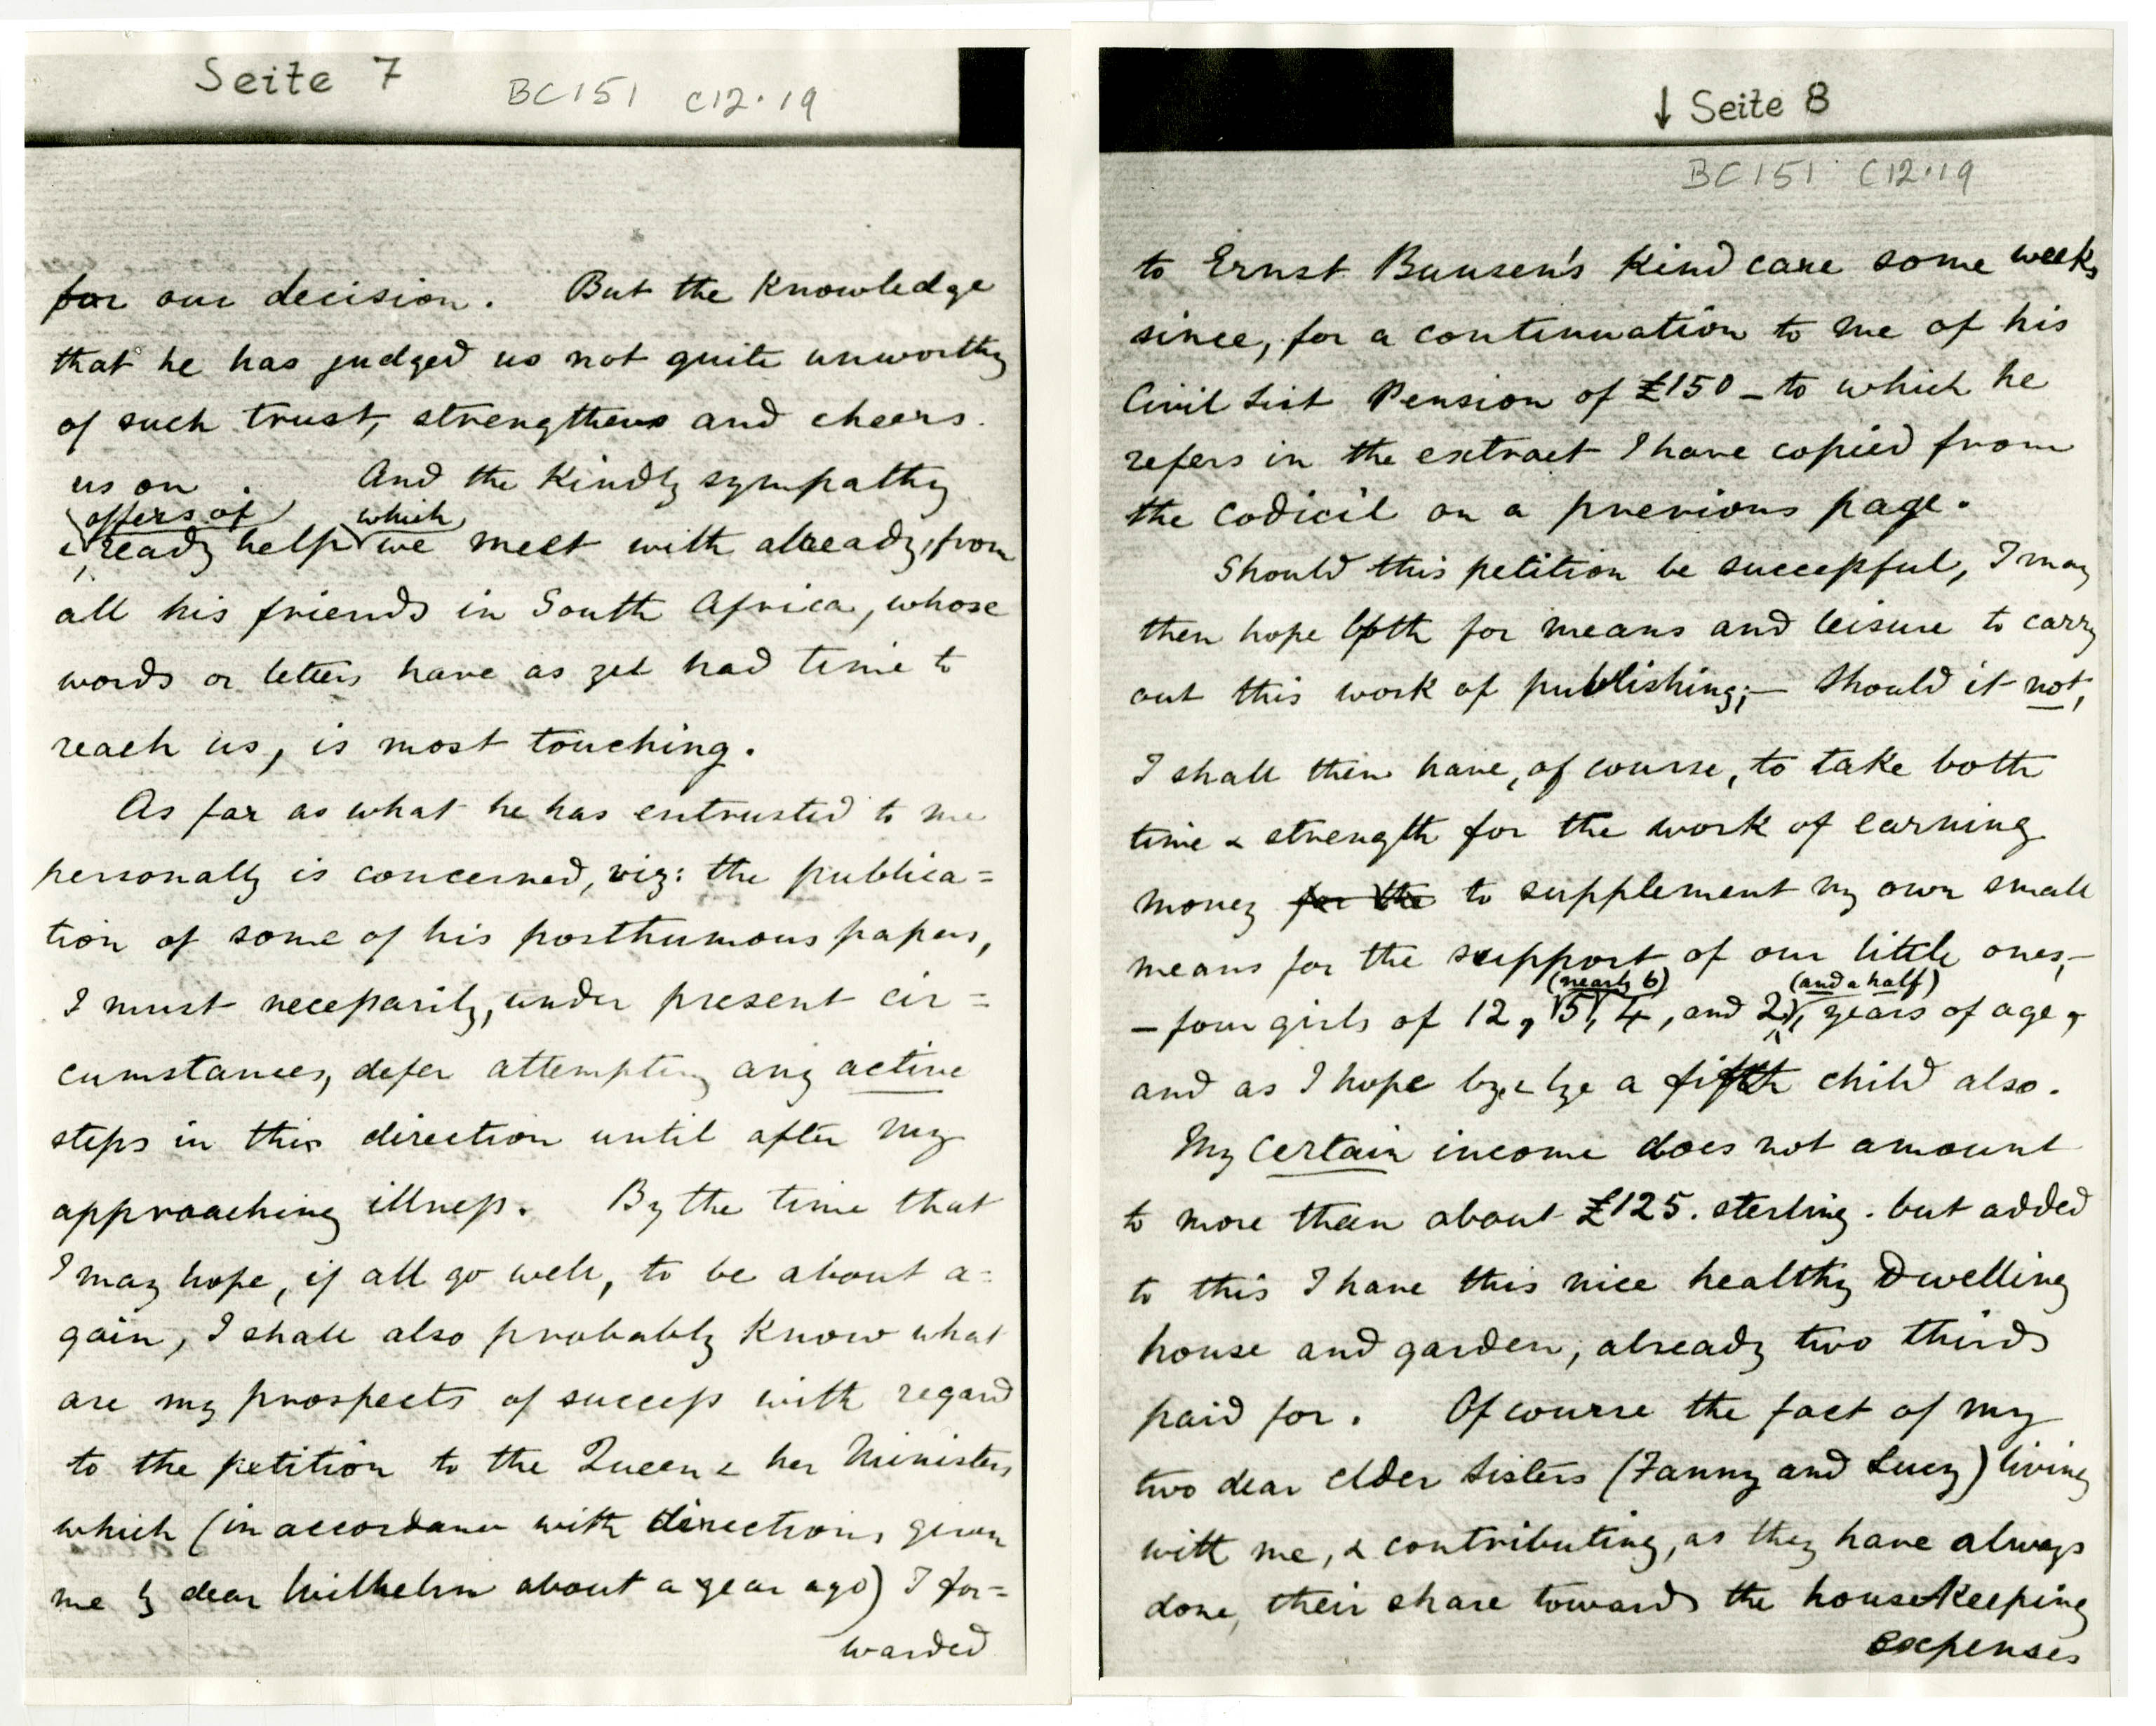 Seite 7
BC151 C12.19
for our decision. But the Knowledge
that he has judged us not quite unworthy
of such trust, strengthens and cheers
us on. And the kindly sympathy
offers of which
& ready help we meet with already, from
all his friends in South Africa, whose
words or letters have as yet had time to
reach us, is most touching.
As far as what he has entrusted to me
personally is concerned, viz: the publica=
tion of some of his posthumous papers,
I must necessarily, under present cir=
cumstances, defer attempting any active
steps in this direction until after my
approaching illness. By the time that
I may hope, if all go well, to be about a=
gain, I shall also probably know what
are my prospects of success with regard
to the petition to the Queen & her Ministers
which (in accordance with directions given
me by dear Wilhelm about a year ago) I for=
warded
↓ Seite 8
BC151 C12.19
to Ernst Bunsen's kind care some weeks
since, for a continuation to me of his
Civil List Pension of £150 – to which he
refers in the extract I have copied from
the codicil on a previous page.
Should this petition be successful, I may
then hope both for means and leisure to carry
out this work of publishing;— Should it not,
I shall then have, of course, to take both
time & strength for the work of earning
money for the to supplement my own small
means for the support of our little ones,–
(nearly 6) (and a half)
– four girls of 12, 5, 4, and 2, years of age,
and as I hope by & bye a fifth child also.
My certain income does not amount
to more than about £125. sterling. but added
to this I have this nice healthy Dwelling
house and garden, already two thirds
paid for. Of course the fact of my
two dear elder Sisters (Fanny and Lucy) living
with me, & contributing, as they have always
done, their share towards the housekeeping
expenses